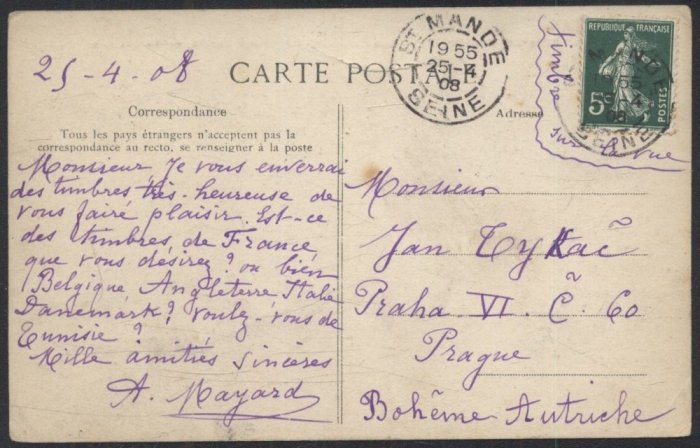 25-4-08
CARTE POSTALE
Correspondance
Tous les pays étrangers n'acceptent pas la
correspondance au recto, se renseigner à la poste
Monsieur, Je vous enverrai
des timbres très-heureuse de
vous faire plaisir. Est-ce
des timbres de France
que vous désirez? ou bien
Belgique Angleterre Italie
Danemark? voulez-vous de
Tunisie?
Mille amitiés sincères
A. Mayard
ST MANDE
19 55
25-4
08
SEINE
Adresse
timbre
sur la vue
REPUBLIQUE FRANÇAISE
5c
POSTES
Monsieur
Jan Tykač
Praha VI. Č. 60
Prague
Bohême Autriche